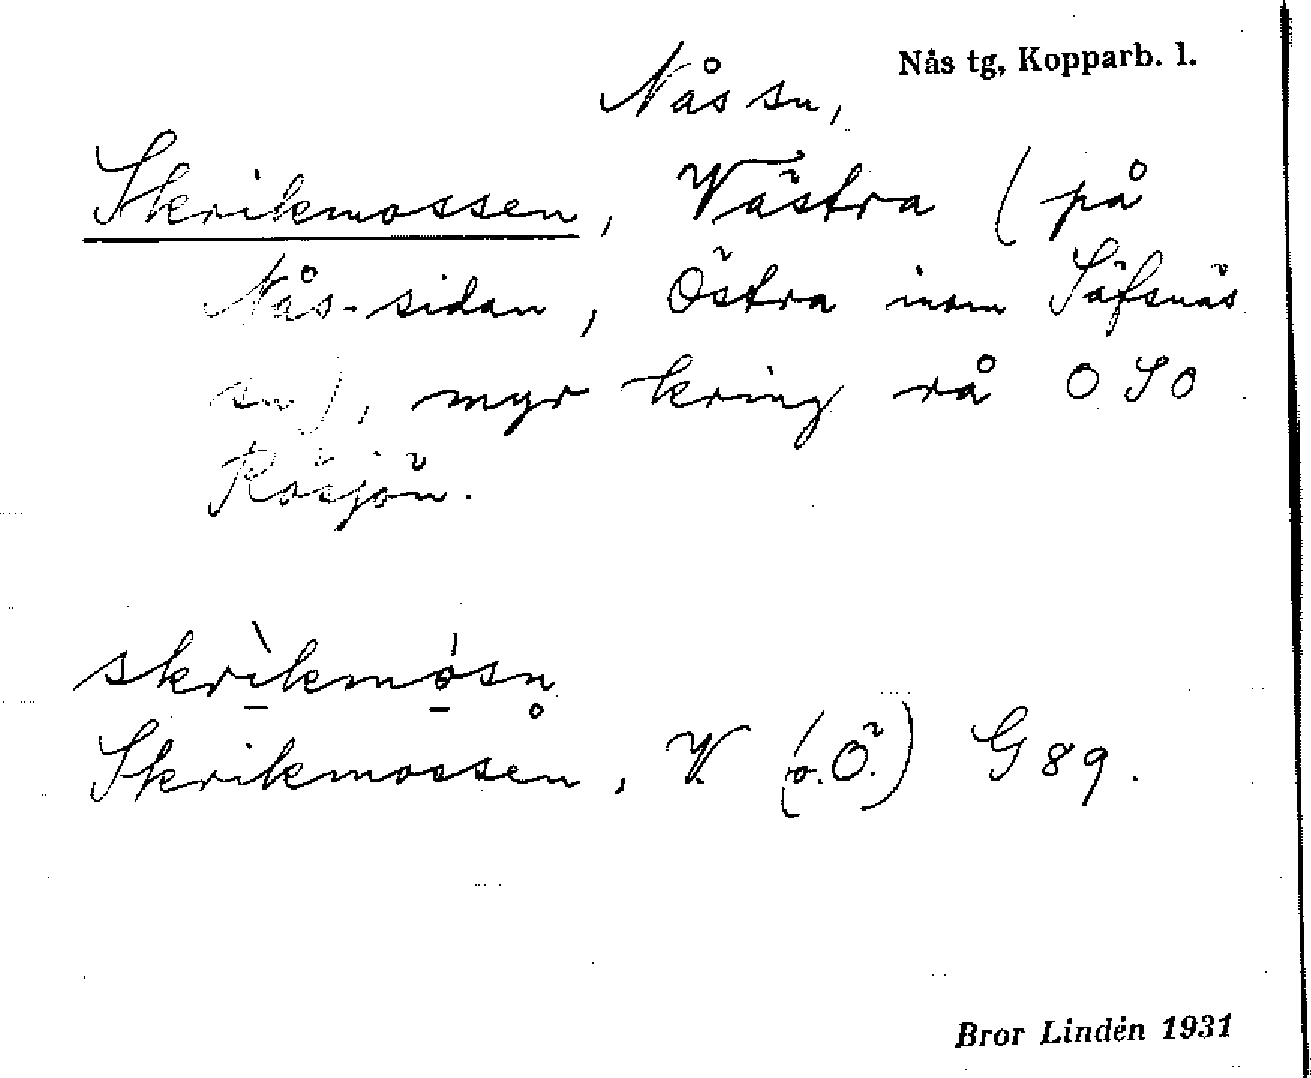 Nås tg, Kopparb. l.
Nås sn,
Skrikmossen, Västra (på
Nås-sidan, Östra inom Säfsnäs
sn), myr kring rå OSO
Råsjön.
skrìkmósn̥
Skrikmossen, V. (o. Ö.) G 89.
Bror Lindén 1931